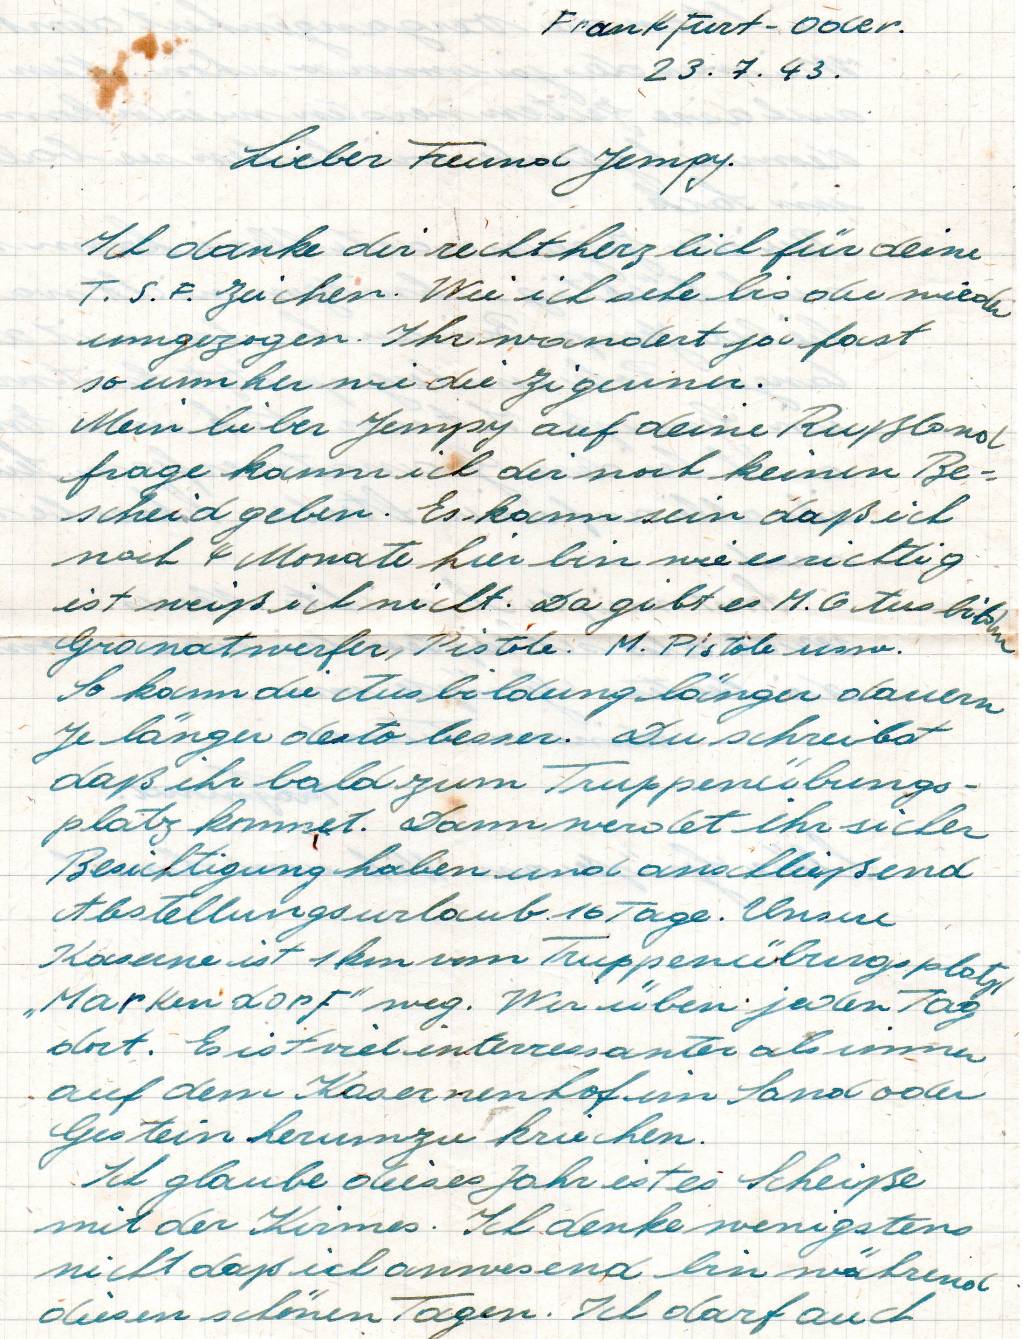 Frankfurt-Oder.
23.7.43.
Lieber Freund Jempy.
Ich danke dir recht herzlich für deine
T.S.F. Zeichen. Wie ich sehe bis du wieder
umgezogen. Ihr wandert ja fast
so umher wie die Zigeuner.
Mein lieber Jempy auf deine Rußland
frage kann ich dir noch keinen Be=
scheid geben. Es kann sein daß ich
noch 4 Monate hier bin wie es richtig
ist weiß ich nicht. Da gibt es M.G Ausbildung
Granatwerfer, Pistole. M. Pistole usw.
So kann die Ausbildung länger dauern
Je länger desto besser. Du schreibst
daß ihr bald zum Truppenübungs-
platz kommet. Dann werdet ihr sicher
Besichtigung haben und anschließend
Abstellungsurlaub. 16 Tage. Unsere
Kaserne ist 1km vom Truppenübungsplatz
„Markendorf" weg. Wir üben jeden Tag
dort. Es ist viel interressanter als immer
auf dem Kasernenhof im Sand oder
Gestein herumzu kriechen.
Ich glaube dieses Jahr ist es Scheiße
mit der Kirmes. Ich denke wenigstens
nicht daß ich anwesend bin während
diesen schönen Tagen. Ich darf auch